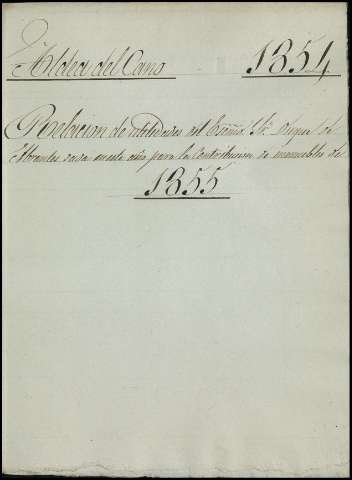 Aldea del Cano 1854
Relacion de utilidades del Exmo. Sr. Duque de
Abrantes para este año para la Contribucion de inmuebles de
1855